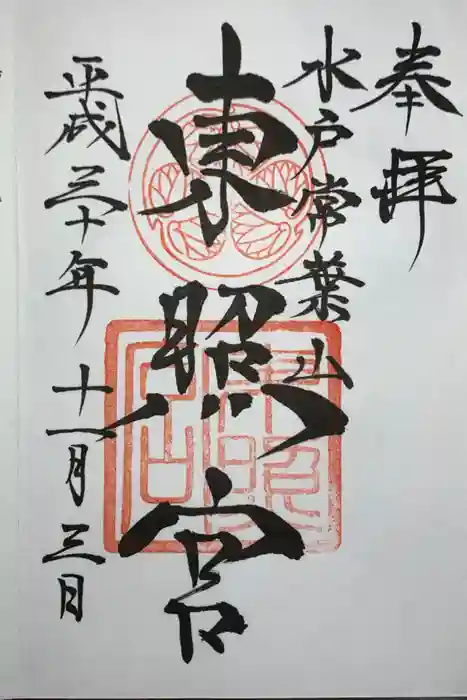 奉拝
水戸常葉山
東照宮
平成三十年十一月三日